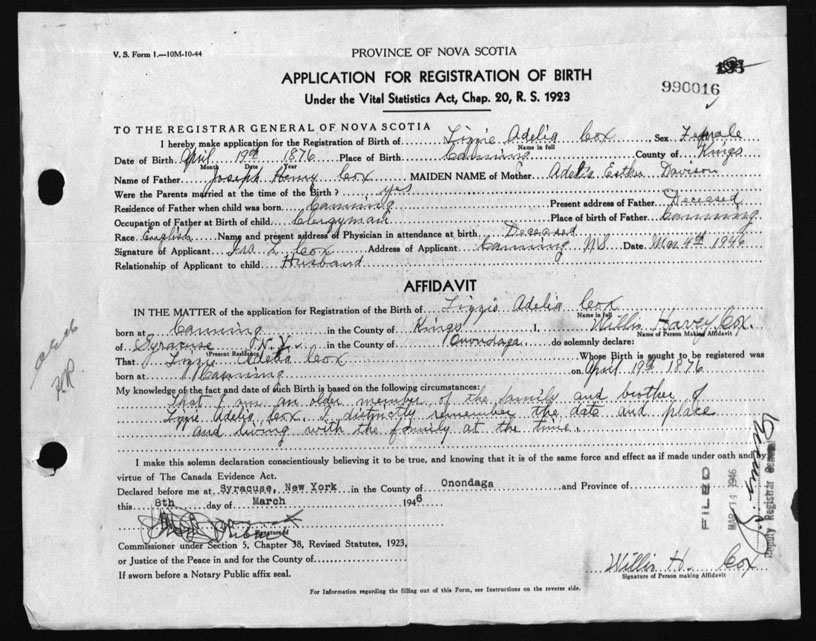 V. S. Form 1.—10M-10-44
PROVINCE OF NOVA SCOTIA
APPLICATION FOR REGISTRATION OF BIRTH
990016
Under the Vital Statistics Act, Chap. 20, R. S. 1923
TO THE REGISTRAR GENERAL OF NOVA SCOTIA
I hereby make application for the Registration of Birth of Lizzie Adelia Cox Sex Female
Name in full
Date of Birth April 19th 1876 Place of Birth Canning County of Kings
Month Date Year
Name of Father Joseph Henry Cox MAIDEN NAME of Mother Adelia Esther Davison
Were the Parents married at the time of the Birth? yes
Residence of Father when child was born Canning Present address of Father Deceased
Occupation of Father at Birth of child Clergyman Place of birth of Father Canning
Race English Name and present address of Physician in attendance at birth Deceased
Signature of Applicant L. Cox Address of Applicant Canning NS Date Mar 4th 1946
Relationship of Applicant to child Husband
AFFIDAVIT
IN THE MATTER of the application for Registration of the Birth of Lizzie Adelia Cox
Name in full
born at Canning in the County of Kings I, Willis Harvey Cox
Name of Person Making Affidavit
of Syracuse N.Y. in the County of Onondaga do solemnly declare:
Present Residence
That Lizzie Adelia Cox Whose Birth is sought to be registered was
born at Canning on April 19th 1876
My knowledge of the fact and date of such Birth is based on the following circumstances:
That I am an older member of the family and brother of
Lizzie Adelia Cox. I distinctly remember the date and place
and living with the family at the time.
I make this solemn declaration conscientiously believing it to be true, and knowing that it is of the same force and effect as if made under oath and by
virtue of The Canada Evidence Act.
Declared before me at Syracuse, New York in the County of Onondaga and Province of
this 8th day of March 1946
Commissioner under Section 5, Chapter 38, Revised Statutes, 1923,
or Justice of the Peace in and for the County of
If sworn before a Notary Public affix seal.
Willis H. Cox
Signature of Person making Affidavit
For Information regarding the filling out of this Form, see Instructions on the reverse side.
FILED
MAR 14 1946
Deputy Registrar General